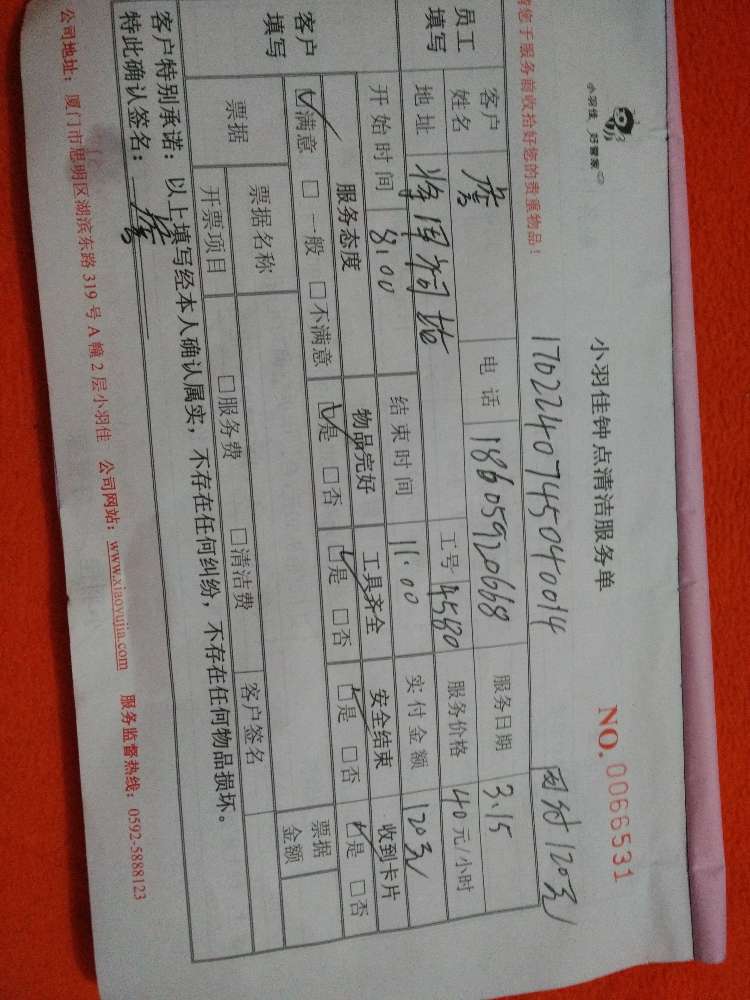 小羽佳 好管家
小羽佳钟点清洁服务单
NO. 0066531
1702240745040014
120元
您于服务前收拾好您的贵重物品!
员工填写
客户姓名 詹 电话 18605920668 服务日期 3.15
地址 工号 4580 服务价格 40元/小时
开始时间 8:00 结束时间 11:00 实付金额 120元
客户填写
服务态度 物品完好 工具齐全 安全结束 收到卡片
☑满意 □一般 □不满意 ☑是 □否 ☑是 □否 ☑是 □否 ☑是 □否
票据 票据名称 票据金额
开票项目 □服务费 □清洁费 客户签名
客户特别承诺:以上填写经本人确认属实,不存在任何纠纷,不存在任何物品损坏。
特此确认签名: 詹
公司地址:厦门市思明区湖滨东路319号A幢2层小羽佳 公司网站:www.xiaoyujia.com 服务监督热线:0592-5888123